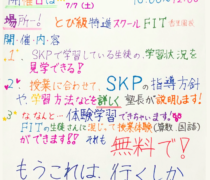 開催日は 7/7(土) 10:00~12:00
場所…! とび級特進スクールFIT
開・催・内・容
1° SKPで学習している生徒の、学習状況を
見学できる?
2° 授業に合わせて、SKPの指導方針
や学習方法などを詳しく塾長が説明します!
3° ななんと…体験学習できちゃいます!
FITの生徒さんに混じって授業体験(算数 国語)
ができます!! それも
無料で!
もうこれは、行くしか